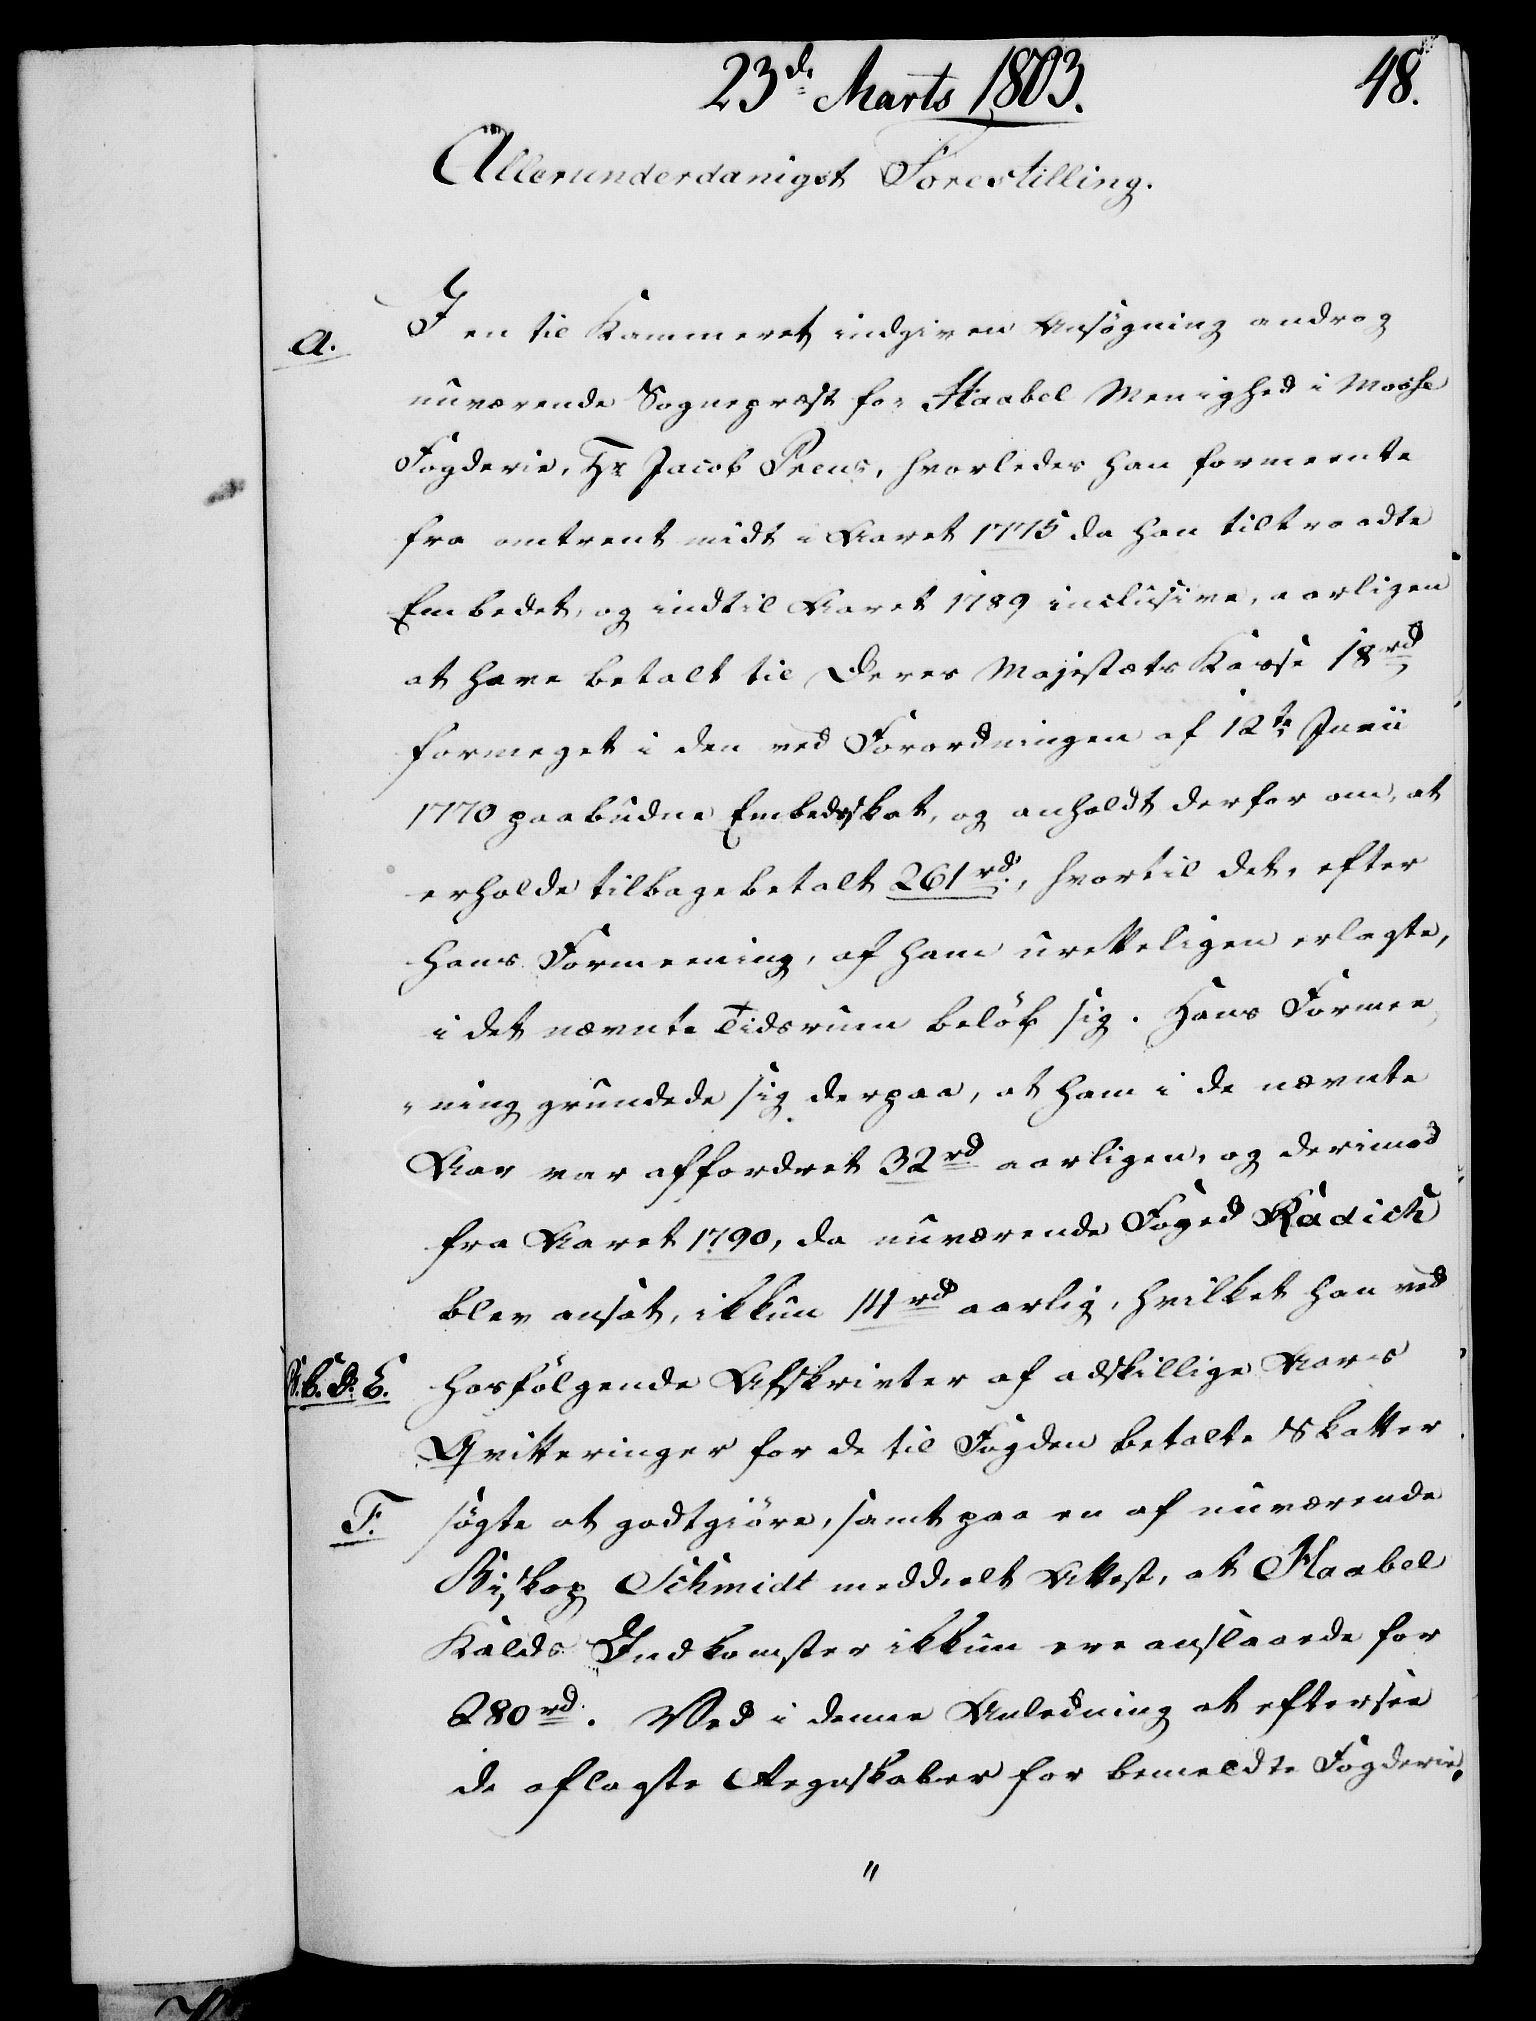 23de Marts 1803.
48.
Allerunderdanigst Forestilling.
A.
I en til Kammeret indgiven Ansøgning androg
nuværende Sognepræst for Haabel Menighed i Mosse
Fogderie, Hr Jacob Preus, hvorledes han formeente
fra omtrent midt i Aaret 1775 da han tiltraadte
Embedet, og indtil Aaret 1789 inclusive, aarligen
at have betalt til Deres Majestæts Kasse 18 rd
formeget i den ved Forordningen af 12te Junii
1770 paabudne Embedsskat, og anholdt derfor om, at
erholde tilbagebetalt 261 rd., hvortil det, efter
hans Formeening, af ham uretteligen erlagte,
i det nævnte Tidsrum beløb sig. Hans Formee
ning grundede sig derpaa, at ham i de nævnte
Aar var affordret 32 rd aarligen, og derimod
fra Aaret 1790, da nuværende Foged Radich
blev ansat, ikkun 14 rd aarlig, hvilket han ved
B. C. D. E.
hosfølgende Afskrivter af adskillige Aars
Qvitteringer for de til Fogden betalte Skatter
F.
søgte at godtgiøre, samt paa en af nuværende
Biskop Schmidt meddeelt Attest, at Haabel
Kalds Indkomster ikkun ere anslaaede for
280 rd. Ved i denne Anledning at eftersee
de aflagte Regnskaber for bemeldte Fogderie,
"